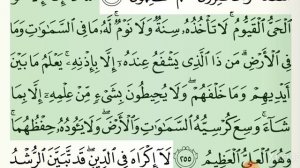 ٱلْحَىُّ ٱلْقَيُّومُ ۚ لَا تَأْخُذُهُۥ سِنَةٌ وَلَا نَوْمٌ ۚ لَّهُۥ مَا فِى ٱلسَّمَـٰوَٰتِ وَمَا
فِى ٱلْأَرْضِ ۗ مَن ذَا ٱلَّذِى يَشْفَعُ عِندَهُۥٓ إِلَّا بِإِذْنِهِۦ ۚ يَعْلَمُ مَا بَيْنَ
أَيْدِيهِمْ وَمَا خَلْفَهُمْ ۖ وَلَا يُحِيطُونَ بِشَىْءٍ مِّنْ عِلْمِهِۦٓ إِلَّا بِمَا
شَآءَ ۚ وَسِعَ كُرْسِيُّهُ ٱلسَّمَـٰوَٰتِ وَٱلْأَرْضَ ۖ وَلَا يَـُٔودُهُۥ حِفْظُهُمَا ۚ
وَهُوَ ٱلْعَلِىُّ ٱلْعَظِيمُ ٢٥٥ لَآ إِكْرَاهَ فِى ٱلدِّينِ ۖ قَد تَّبَيَّنَ ٱلرُّشْدُ